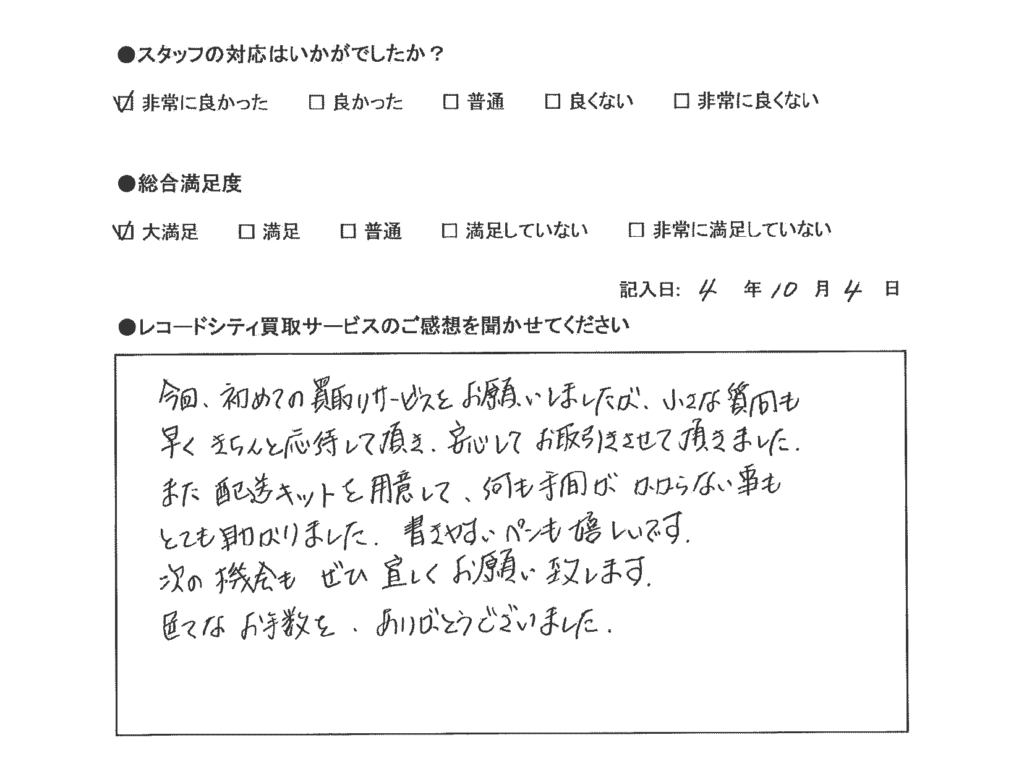 ●スタッフの対応はいかがでしたか？
☑ 非常に良かった □ 良かった □ 普通 □ 良くない □ 非常に良くない
●総合満足度
☑ 大満足 □ 満足 □ 普通 □ 満足していない □ 非常に満足していない
記入日: 4 年 10 月 4 日
●レコードシティ買取サービスのご感想を聞かせてください
今回、初めての買取りサービスをお願いしましたが、小さな質問も
早くきちんと応待して頂き、安心してお取引きさせて頂きました.
また配送キットを用意して、何も手間がかからない事も
とても助かりました. 書きやすいペンも嬉しいです.
次の機会もぜひ宜しくお願い致します.
色々なお手数を、ありがとうございました.